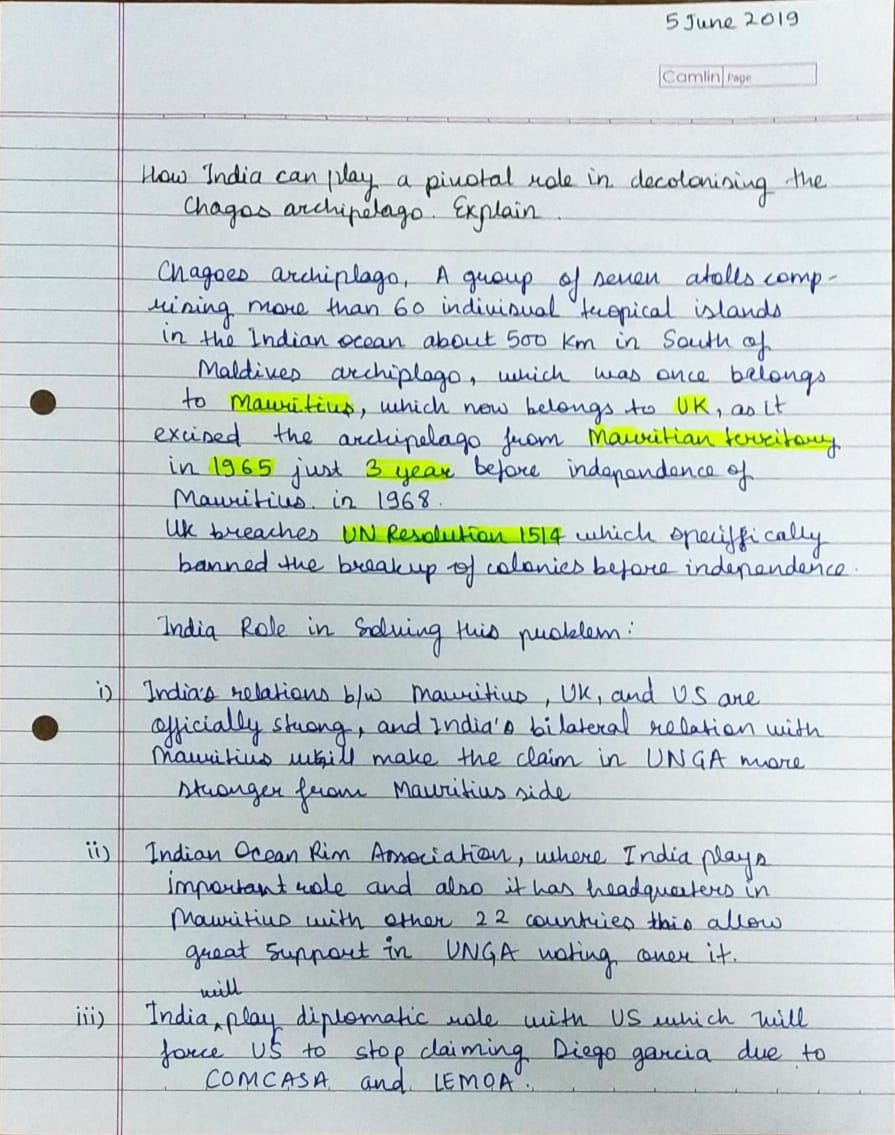 5 June 2019
Camlin Page
How India can play a pivotal role in decolonising the
Chagos archipelago. Explain.
Chagoes archiplago, A group of seven atolls comp-
rising more than 60 indivisual tropical islands
in the Indian ocean about 500 km in South of
Maldives archiplago, which was once belongs
to Mauritius, which now belongs to UK, as it
excised the archipelago from Mauritian terrcitory
in 1965 just 3 year before independence of
Mauritius in 1968.
UK breaches UN Resolution 1514 which speciffically
banned the breakup of colonies before independence.
India Role in Solving this problem:
i) India's relations b/w Mauritius, UK, and US are
officially strong, and India's bilateral relation with
Mauritius will make the claim in UNGA more
stronger from Mauritius side
ii) Indian Ocean Rim Association, where India plays
important role and also it has headquaters in
Mauritius with other 22 countries this allow
great support in UNGA voting over it.
will
iii) India ^ play diplomatic role with US which will
force US to stop claiming Diego garcia due to
COMCASA and LEMOA.